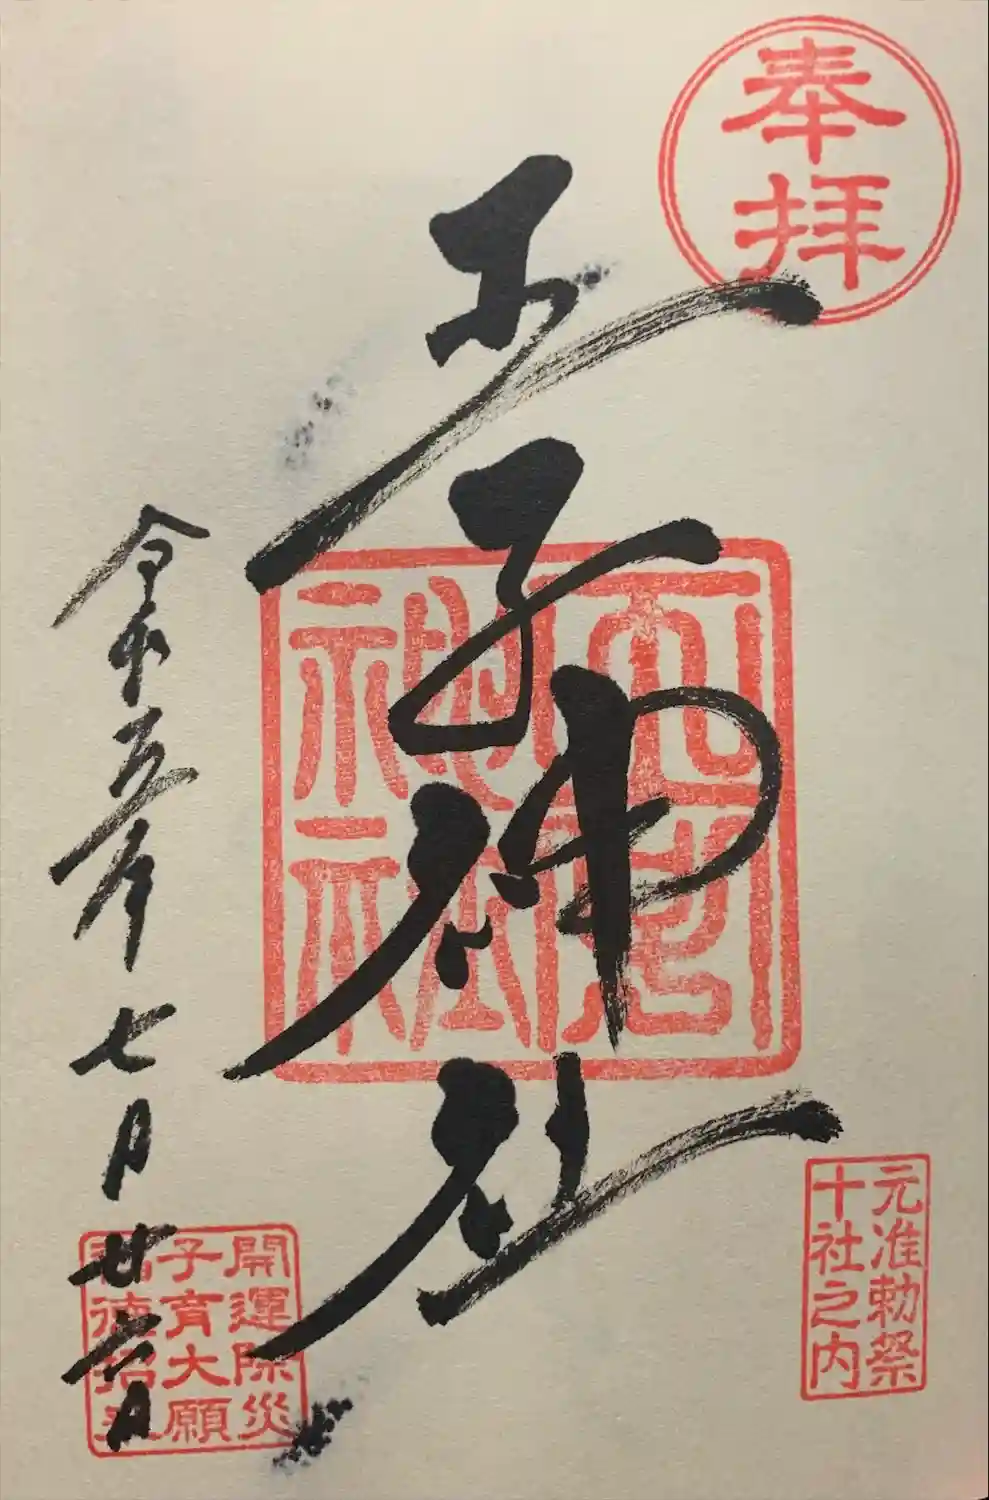 奉拝
王子神社
元准勅祭
十社之内
令和五年七月廿六日
開運除災
子育大願
福徳招来